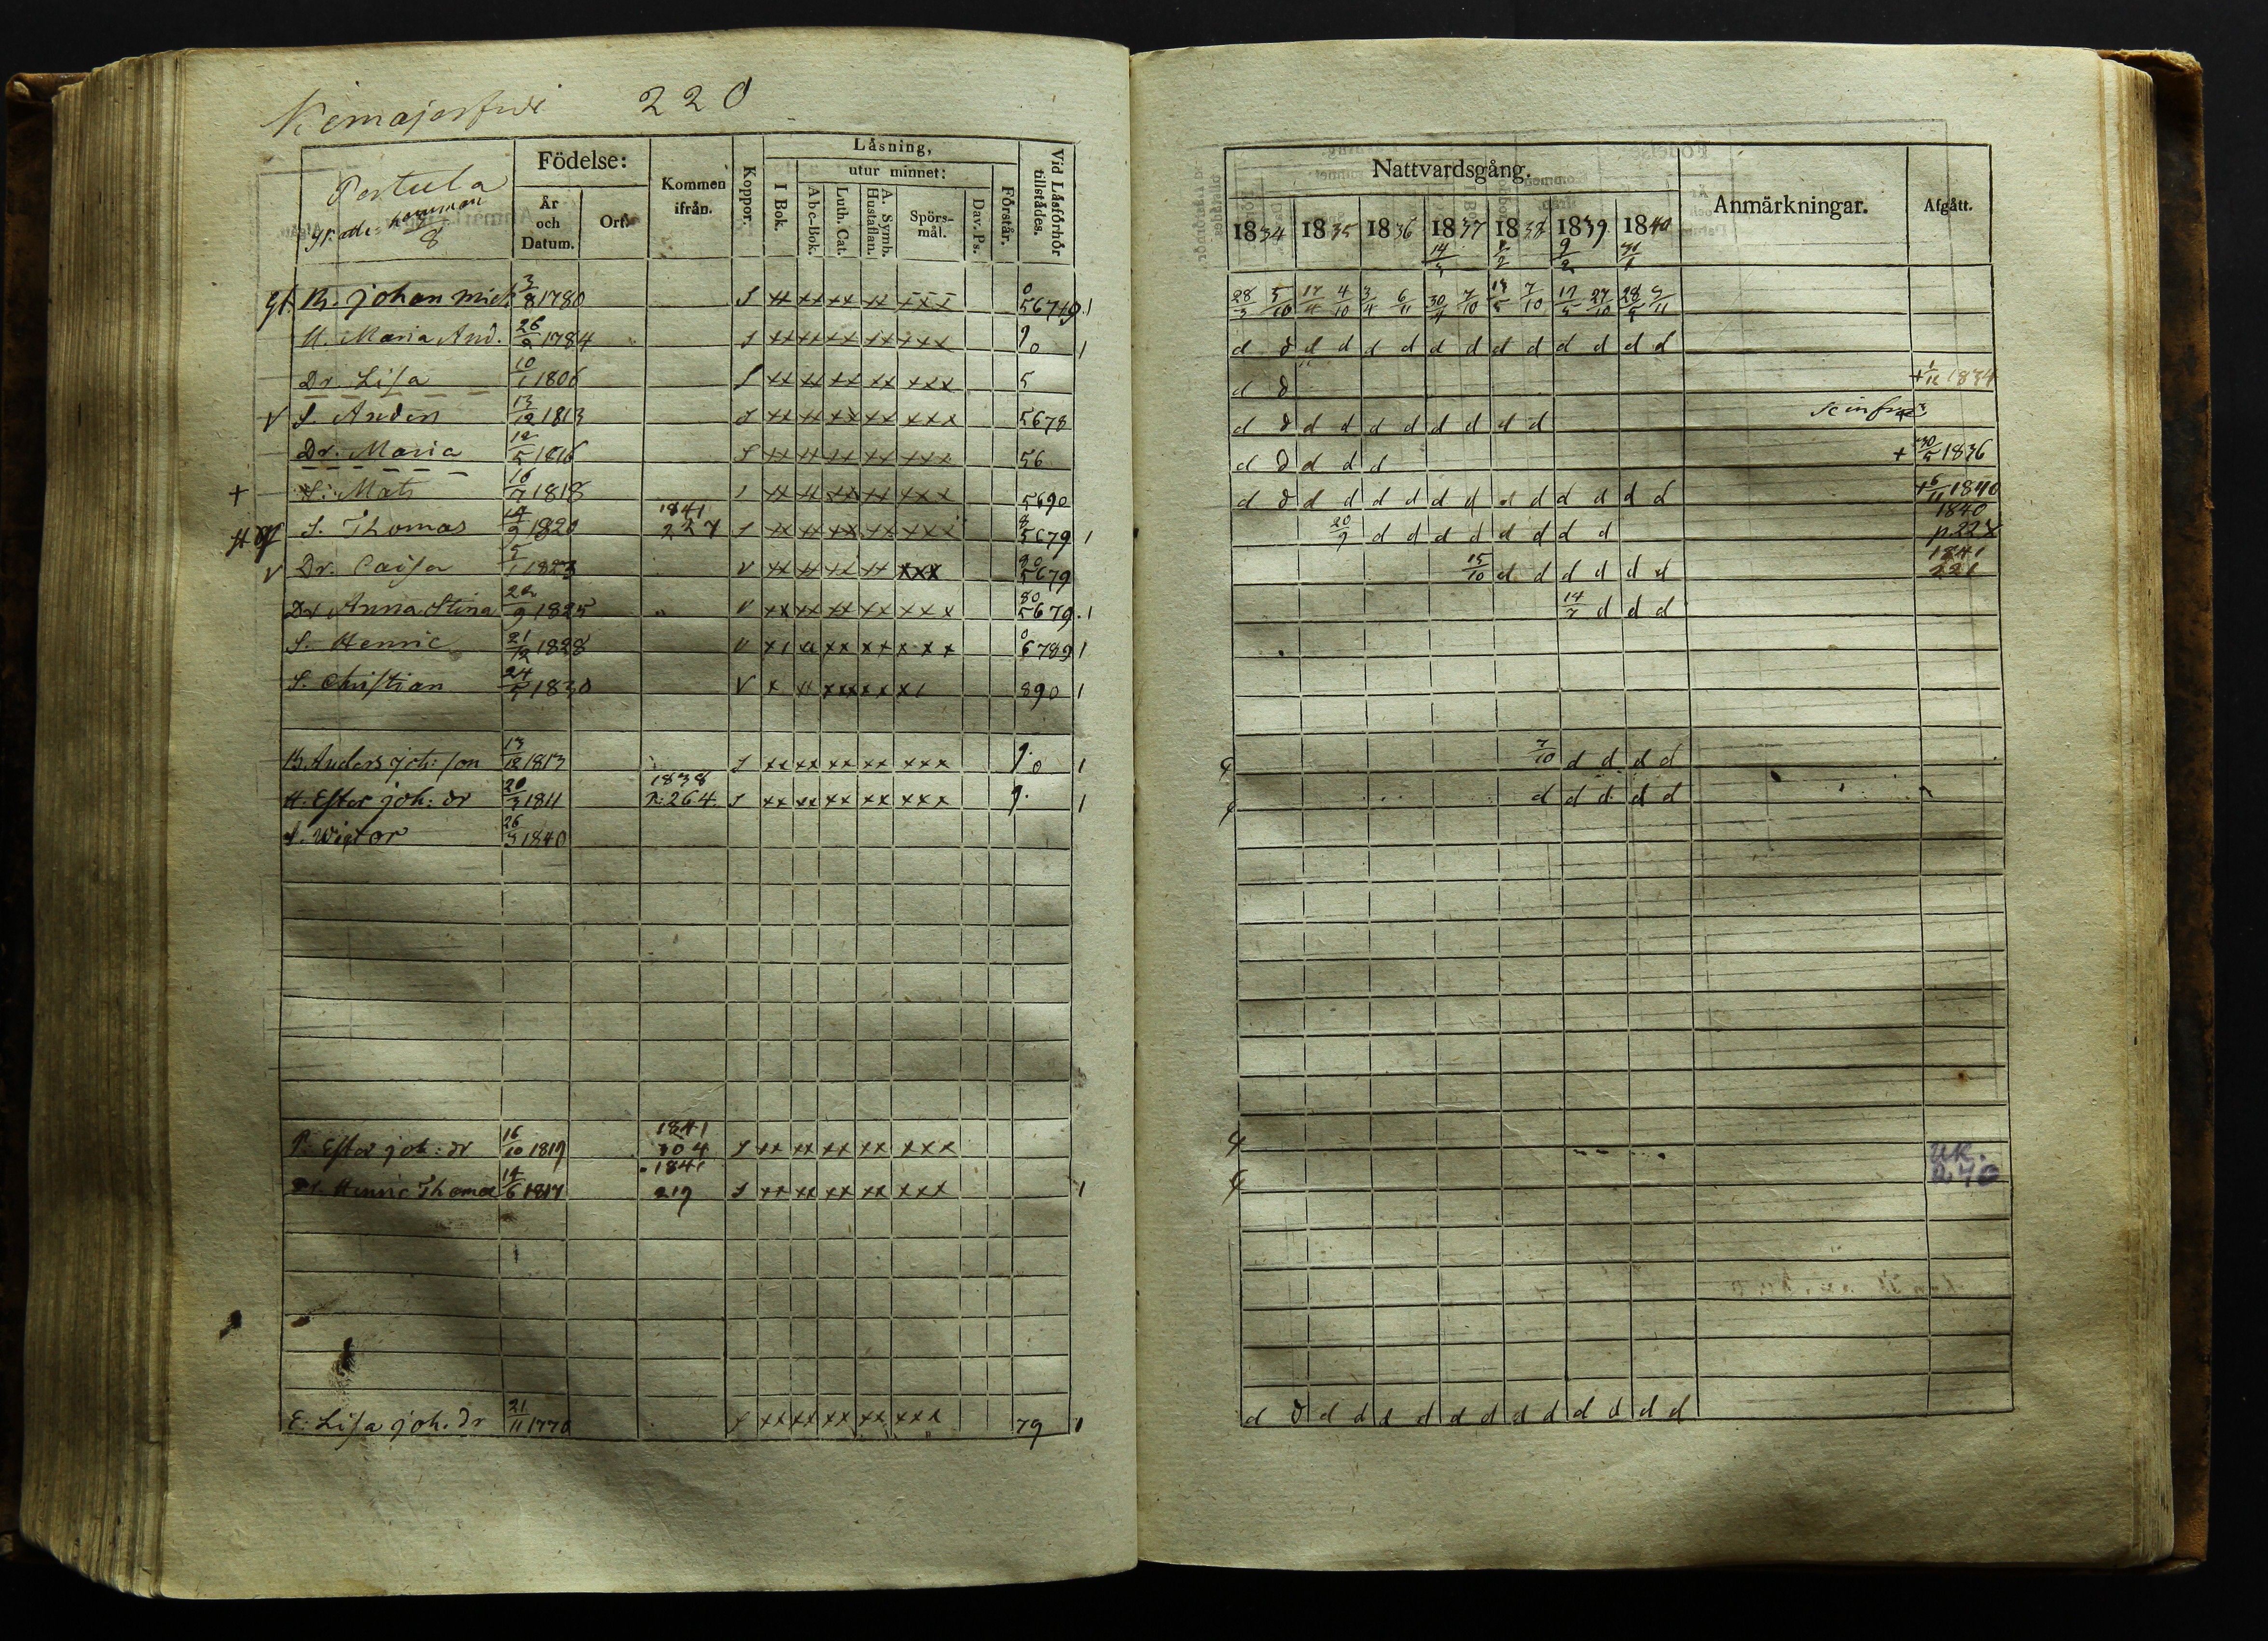 Kemijerfwi 220
Födelse: Låsning,
utur minnet:
Pertula
Kommen ifrån. Koppor. I Bok. Abc-Bok. Luth. Cat. A. Symb. Hustaflan. Spörs-mål. Dav. Ps. Förstår. Vid Låsförhör tillstådes.
År och Datum. Ort.
8
B. Johan Mich. 3/8 1780 S xx xx xx xx xxx 0 56789.1
H. Maria And. 26/9 1784 S xx xx xx xx xxx 9 0 1
Dr. Lisa 10/1 1806 S xx xx xx xx xxx 5
v S. Anders 13/12 1813 S xx xx xx xx xxx 5678
Dr. Maria 12/5 1816 S xx xx xx xx xxx 56
+ S. Mats 10/7 1818 S xx xx xx xx xxx 5690
S. Thomas 14/9 1820 1841 227 S xx xx xx xx xxx 8 5679 1
v Dr. Caisa 1823 v xx xx xx xx xxx 80 5679
Dr Anna Stina 22/9 1825 v xx xx xx xx xxx 80 5679.1
S. Henric 21/12 1828 v xx xx xx xx xxx 0 6789 1
S. Christian 24/5 1830 v x xx xxx xx x1 890 1
B. Anders Joh: son 13/12 1813 S xx xx xx xx xxx 9. 0 1
H. Ester Joh: dr 20/3 1811 1838 P. 264. S xx xx xx xx xxx 9. 1
S. Wiktor 26/3 1840
P. Ester Joh: dr 16/10 1819 1841 304 S xx xx xx xx xxx
Dr. Henric Thomas 14/6 1817 1841 219 S xx xx xx xx xxx 1
E. Lisa Joh. dr 21/11 1770 S xx xx xx xx xxx 79 1
Nattvardsgång. Anmärkningar. Afgått.
1834 1835 1836 1837 1838 1839 1840
14/3 2 9/2 31/1
28/3 5/10 17/4 4/10 3/4 6/11 30/4 7/10 13/5 7/10 17/5 27/10 28/5 9/11
d d d d d d d d d d d d d d
d d + 1834
d d d d d d d d d d se infra
d d d d d + 30/5 1836
d d d d d d d d d d d d d d + 6/11 1840
20/9 d d d d d d d d 1840 p. 228
15/10 d d d d d d 1841 221
14/7 d d d
7/10 d d d d
d d d d d
UK.
240
d d d d d d d d d d d d d d